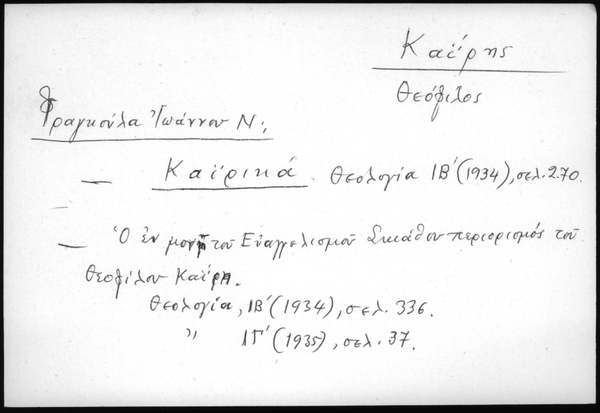 Καΐρης
Θεόφιλος
Φραγκούλα Ἰωάννου Ν:
— Καϊρικά. Θεολογία ΙΒ΄(1934), σελ. 270.
— Ὁ ἐν μονῇ τοῦ Εὐαγγελισμοῦ Σκιάθου περιορισμός τοῦ
Θεοφίλου Καΐρη.
Θεολογία, ΙΒ΄(1934), σελ. 336.
〃 ΙΓ΄(1935), σελ. 37.